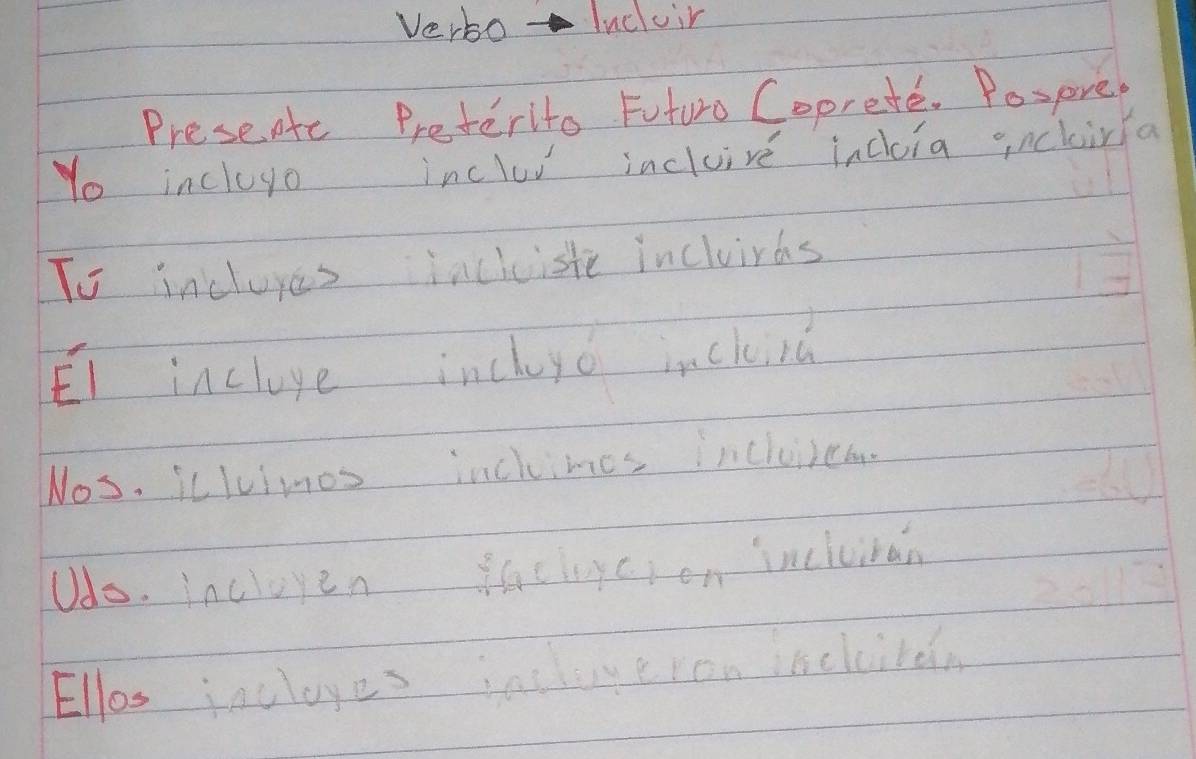 Verbo → Incluir
Presente Pretérito Futuro Copreté. Pospré.
Yo incluyo incluí incluiré incluía incluiría
Tú incluyes incluiste incluirás
Él incluye incluyó incluirá
Nos. icluimos incluimos incluirem.
Uds. incluyen incluyeron incluirán
Ellos incluyes incluyeron incluirán